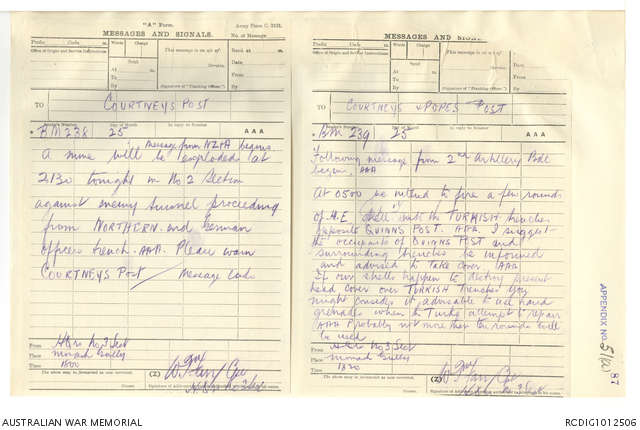 "A" Form.
Army Form C. 2121.
MESSAGES AND SIGNALS.
No. of Message
Prefix Code m.
Words Charge
This message is on a/c of:
Recd. at m.
Office of Origin and Service Instructions
Sent
Date
At m.
From
To
By
By
(Signature of "Franking Officer.")
TO COURTNEYS POST
Sender's Number Day of Month In reply to Number
BM 238 25 AAA
Message from NZ&A begins
A mine will be exploded at
2130 tonight in No 2 Section
against enemy tunnel proceeding
from NORTHERN end German
officers trench. AAA. Please warn
COURTNEYS POST / Message Ends
From Hdrs No 3 Sect
Place Monash Gully
Time 1800
The above may be forwarded as now corrected. (Z)
Censor.
MESSAGES AND SIGNALS.
Prefix Code m.
Words Charge
This message is on a/c of:
Recd. at m.
Office of Origin and Service Instructions
Sent
Date
At m.
From
To
By
By
(Signature of "Franking Officer.")
TO COURTNEYS & POPES POST
Day of Month In reply to Number
BM 239 25 AAA
Following message from 2nd Artillery Bde
begins. AAA
At 0500 we intend to fire a few rounds
of H.E. shell into the TURKISH trenches
opposite QUINNS POST. AAA. I suggest
the occupants of QUINNS POST and
surrounding trenches be informed
and advised to take cover AAA
If our shells happen to destroy present
head cover over TURKISH trenches you
might consider it advisable to use hand
grenades when the Turks attempt to repair
AAA Probably not more than ten rounds will
be used
From Hdrs No 3 Sect
Place Monash Gully
Time 1820
The above may be forwarded as now corrected. (Z)
Censor.
APPENDIX NO. 5(a)
87
AUSTRALIAN WAR MEMORIAL
RCDIG1012506